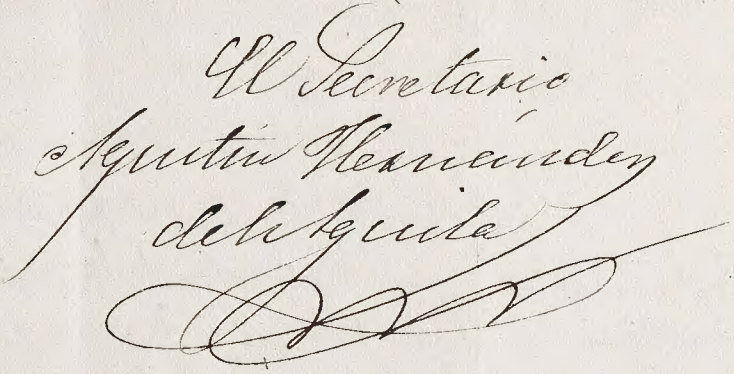 El Secretario
Agustín Hernández
del Aguila